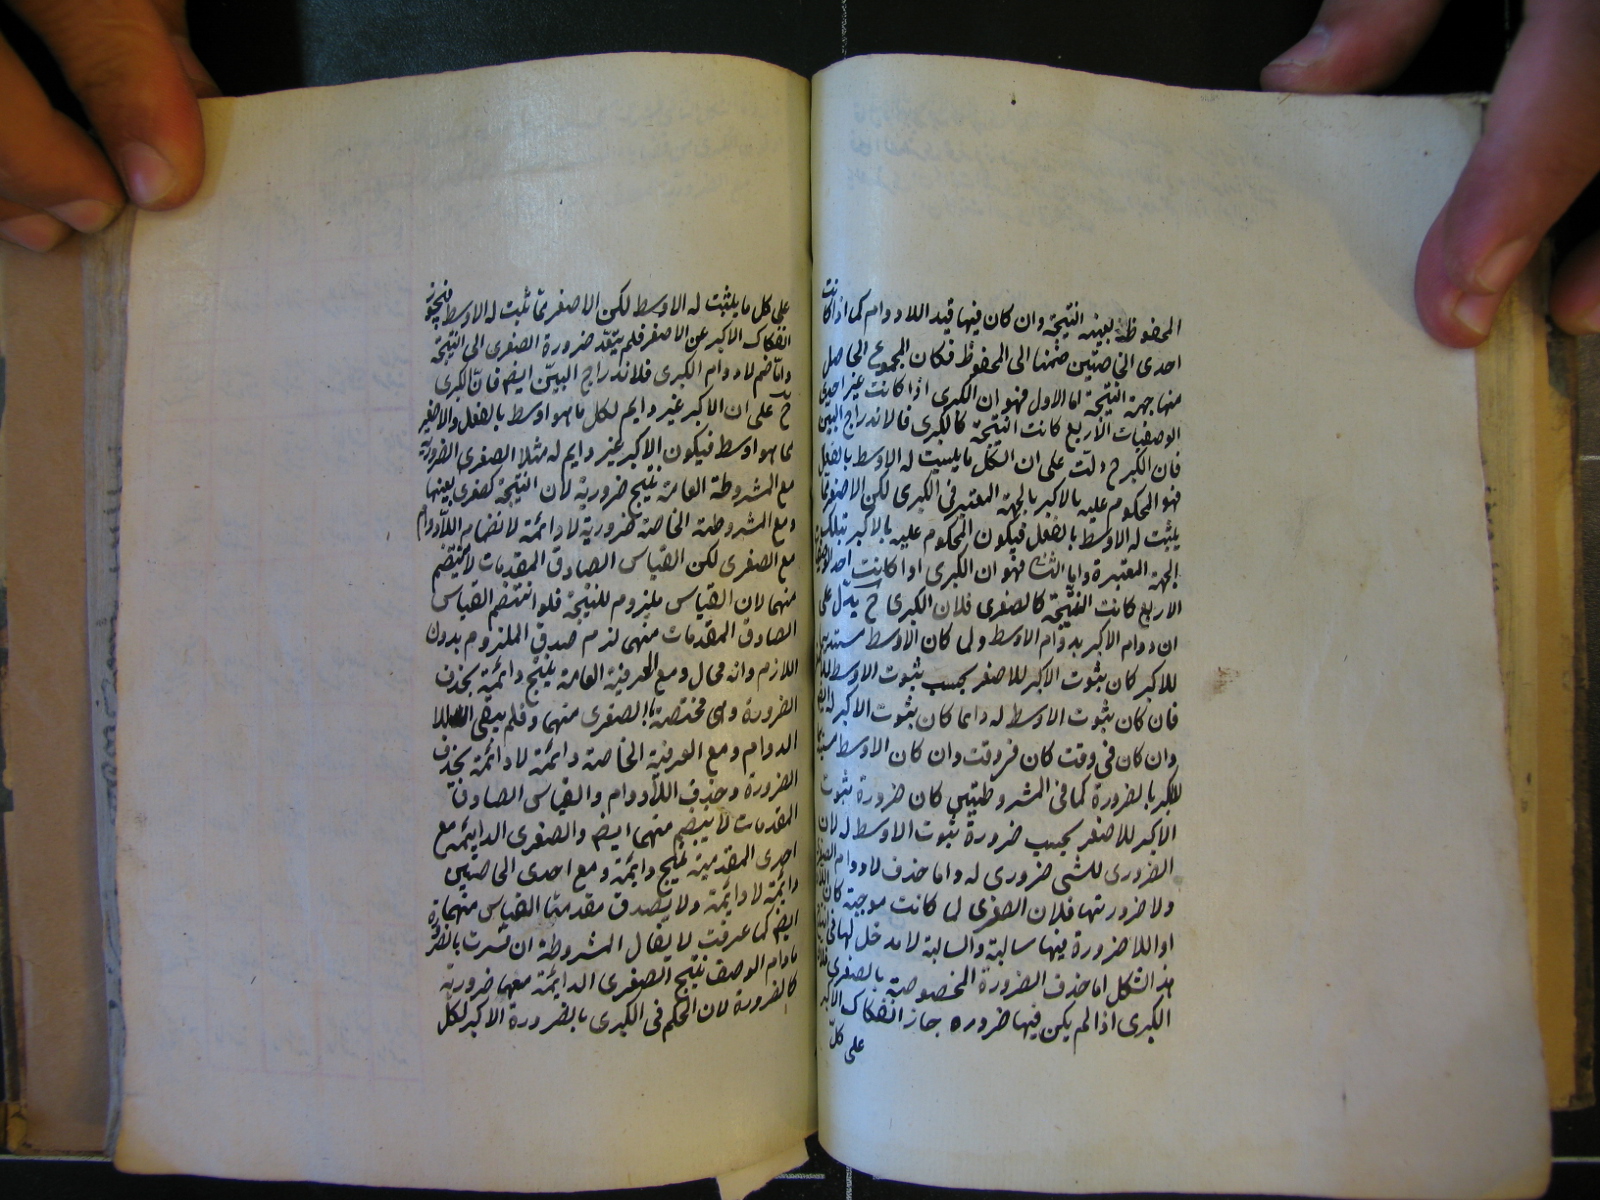 المحفوظة بعينه النتيجة وان كان فيها قيد اللادوام كما اذا كانت
احدى الخاصتين ضمنها الى المحفوظ فكان المجموع الحاصل
منها جهة النتيجة اما الاول فهو ان الكبرى اذا كانت غير احدى
الوصفيات الاربع كانت النتيجة كالكبرى فالاندراج البين
فان الكبرى ح دلت على ان الكل ما يثبت له الاوسط بالفعل
فهو المحكوم عليه بالاكبر بالجهة المعتبر فى الكبرى لكن الاصغر مما
يثبت له الاوسط بالفعل فيكون المحكوم عليه بالاكبر بتلك
الجهة المعتبرة واما الثانى فهو ان الكبرى اذا كانت احدى الوصفيات
الاربع كانت النتيجة كالصغرى فلان الكبرى ح يدل على
ان دوام الاكبر بدوام الاوسط ولما كان الاوسط مستديما
للاكبر كان ثبوت الاكبر للاصغر بحسب ثبوت الاوسط له
فان كان ثبوت الاوسط له دائما كان ثبوت الاكبر له ايضا
وان كان فى وقت كان فى وقت وان كان الاوسط
للاكبر بالضرورة كما فى المشروطتين كان ضرورة ثبوت
الاكبر للاصغر بحسب ضرورة ثبوت الاوسط له لان
الضرورى للشى ضرورى له واما حذف لادوام الصغرى
ولا ضرورتها فلان الصغرى لما كانت موجبة كان
او اللاضرورة فيها سالبة والسالبة لا مدخل لها فى
هذا الشكل اما حذف الضرورة المخصوصة بالصغرى فلان
الكبرى اذا لم يكن فيها ضروره جاز انفكاك الاكبر
على كل
على كل ما يثبت له الاوسط لكن الاصغر مما ثبت له الاوسط فيجوز
انفكاك الاكبر عن الاصغر فلم يتعد ضرورة الصغرى الى النتيجة
واما ضم لادوام الكبرى فلاندراج البين ايضا فان الكبرى
ح على ان الاكبر غير دايم لكل ما هو اوسط بالفعل والاصغر
مما هو اوسط فيكون الاكبر غير دايم له مثلا الصغرى الضرورية
مع المشروطة العامة ينتج ضرورية لان النتيجة كصغرى بعينها
ومع المشروطة الخاصة ضرورية لادائمة لانضمام اللادوام
مع الصغرى لكن القياس الصادق المقدمات لا ينتظم
منهما لان القياس ملزوم للنتيجة فلو انتظم القياس
الصادق المقدمات منهى لزم صدق الملزوم بدون
اللازم وانه محال ومع العرفية العامة ينتج دائمة بحذف
الضرورة وهى مختصة بالصغرى منهما وفلم يبقى الا
الدوام ومع العرفية الخاصة دائمة لادائمة بحذف
الضرورة وحذف اللادوام والقياس الصادق
المقدمات لا ينتظم منهما ايضا والصغرى الدايمة مع
احدى المقدمية ينتج دايمة ومع احدى الخاصتين
دائمة لادايمة ولا يصدق مقدمتا القياس منهما
ايضا كما عرفت لا يقال المشروطة ان فسرت بالضرورة
مادام الوصف ينتج الصغرى الدايمة معها ضرورية
كالضرورة لان الحكم فى الكبرى بالضرورة الاكبر لكل